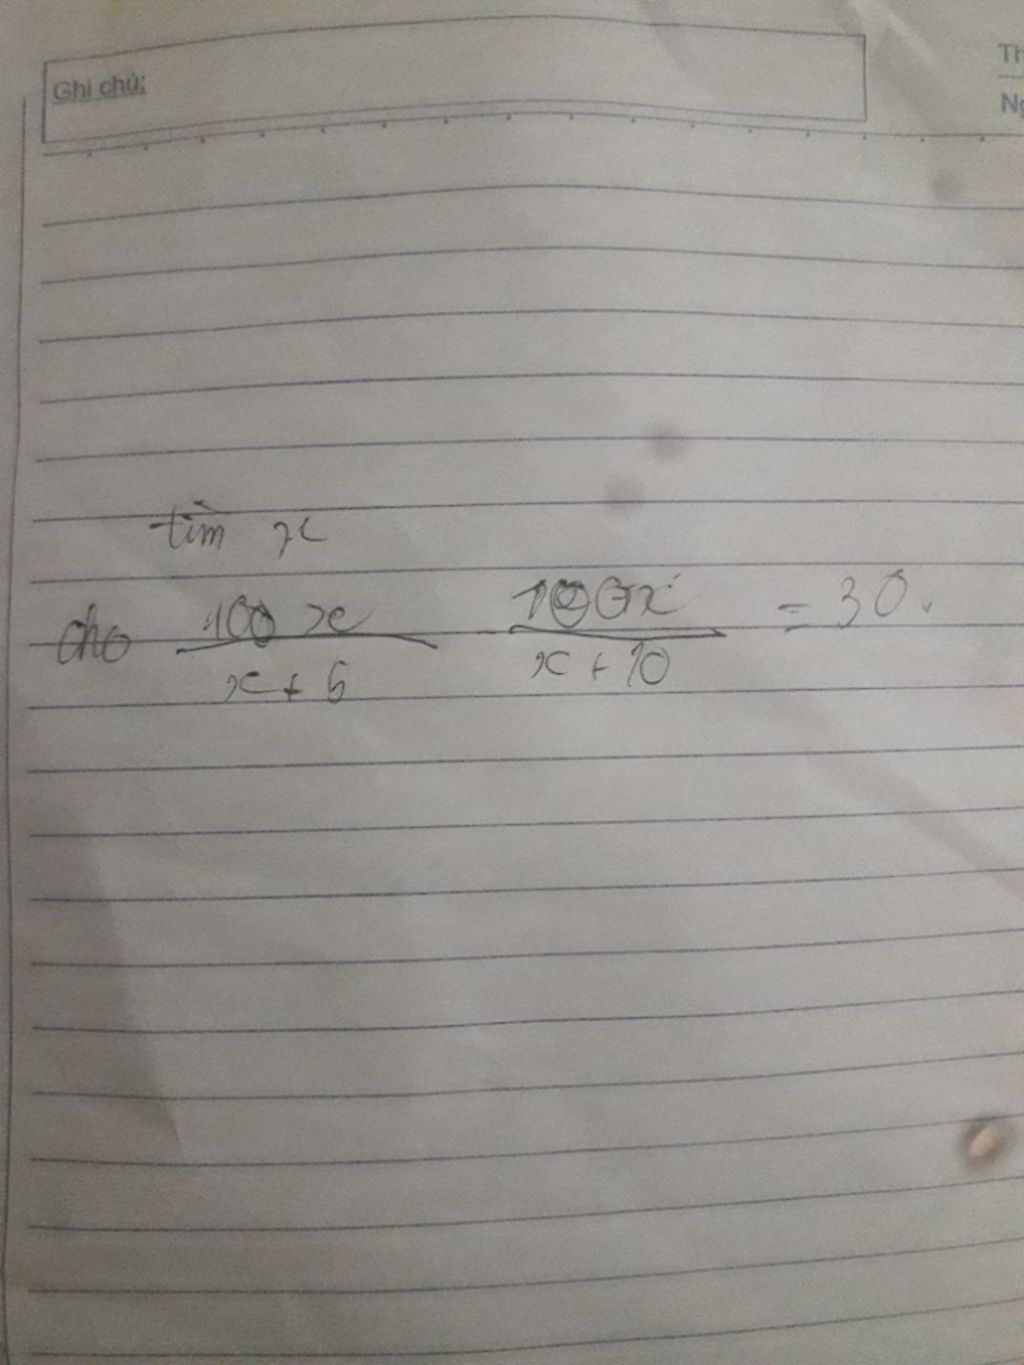 Ghi chú:
Th
Ng
tìm x
cho 100x / x + 5 - 100x / x + 10 = 30.